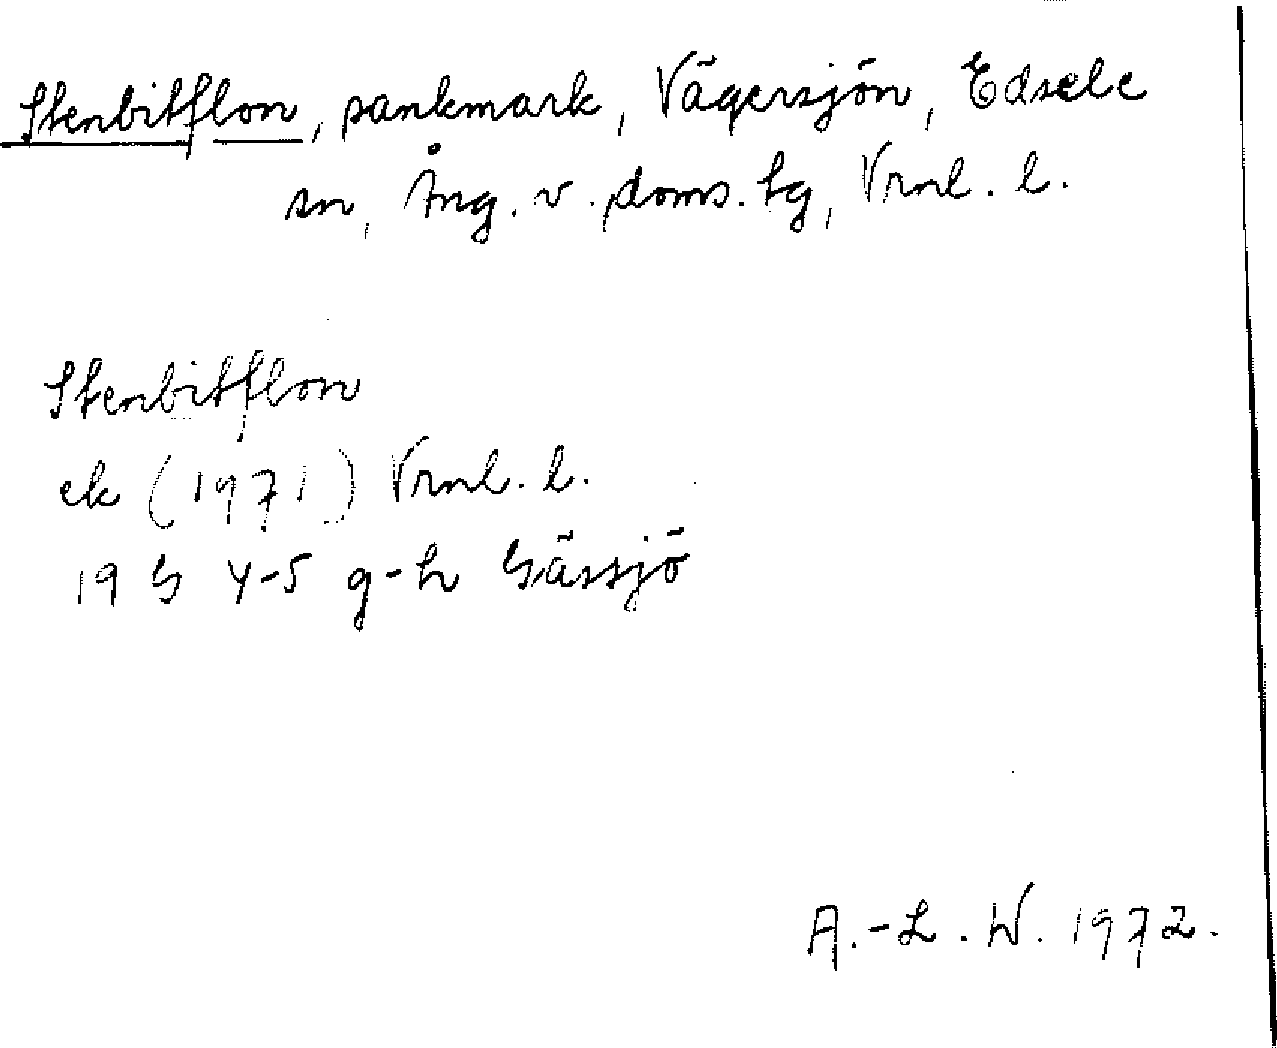 Stenbitflon, sankmark, Vägersjön, Edsele
sn, Ång. v. doms. tg, Vrnl. l.
Stenbitflon
ek (1971) Vrnl. l.
19 G 4-5 g-h Gåssjö
A.-L. W. 1972.